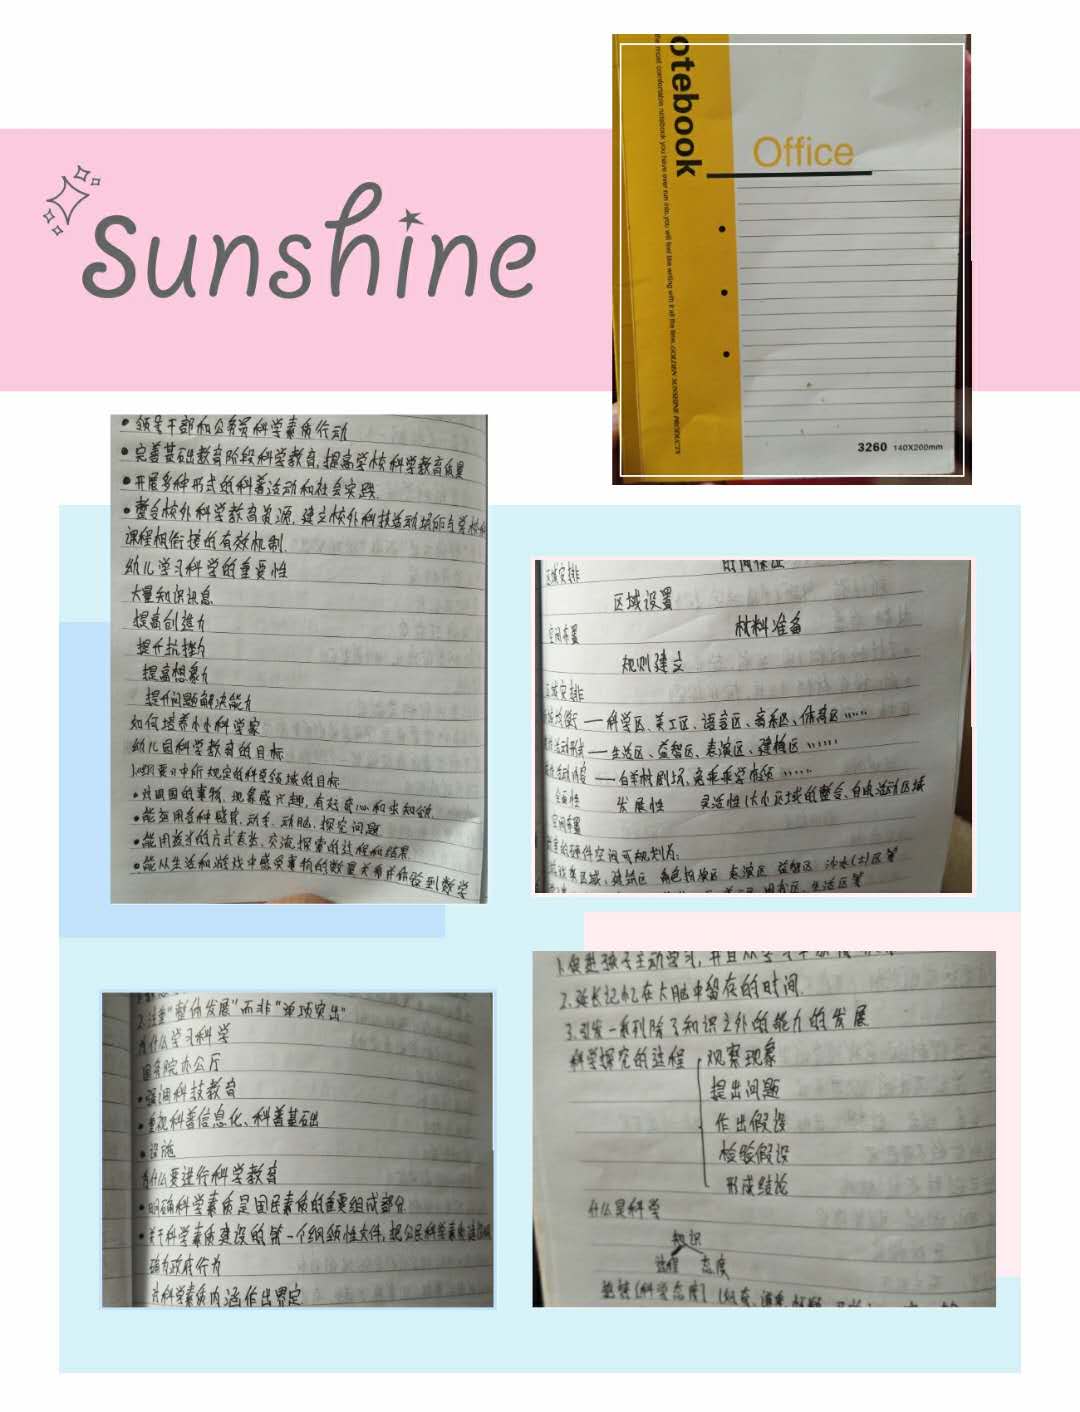 Sunshine
otebook
the most comfortable notebook you have ever run into.you will feel like writing with it all the time. GOLDEN SUNSHINE PRODUCTS
Office
3260 140X200mm
•领导干部和公务员科学素质行动
•完善基础教育阶段科学教育,提高学校科学教育质量
•开展多种形式的科普活动和社会实践.
•整合校外科学教育资源,建立校外科技活动场所与学校科
课程相衔接的有效机制.
幼儿学习科学的重要性
大量知识讯息
提高创造力
提升抗挫力
提高想象力
提升问题解决能力
如何培养小小科学家
幼儿园科学教育的目标
《纲要》中所规定的科学领域的目标
•对周围的事物、现象感兴趣,有好奇心和求知欲.
•能运用各种感官,动手、动脑,探究问题
•能用适当的方式表达、交流探索的过程和结果
•能从生活和游戏中感受事物的数量关系并体验到数学
区域安排
时间保证
区域设置
空间布置
材料准备
规则建立
区域安排
——科学区、美工区、语言区、音乐区、体育区……
活动形式——生活区、益智区、表演区、建构区……
活动内容——白羊村剧场、兔乖乖学本领……
全面性 发展性 灵活性(大小区域的整合、自由活动区域
空间布置
硬件空间可规划为:
区域、建筑区 角色扮演区 表演区 益智区 沙水(土)区等
区、生活区等
2.注重"整体发展"而非"单项突出"
为什么学习科学
国务院办公厅
•强调科技教育
•重视科普信息化、科普基础
•设施
为什么要进行科学教育
•明确科学素质是国民素质的重要组成部分
•关于科学素质建设的第一个纲领性文件,把公民科学素质建设明
确为政府行为
对科学素质内涵作出界定
1.促进孩子主动学习,并且从
2.延长记忆在大脑中留存的时间.
3.引发一系列除了知识之外的能力的发展
科学探究的过程 观察现象
提出问题
作出假设
检验假设
形成结论
什么是科学
知识
过程 态度
(科学态度)